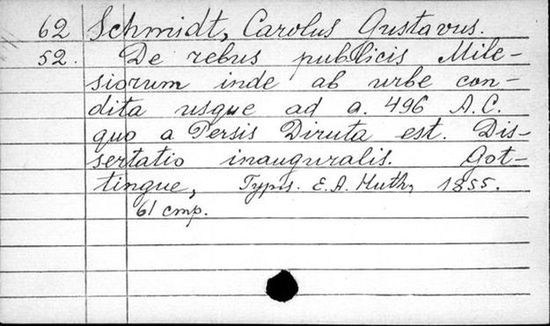 62 Schmidt, Carolus Gustavus.
52. De rebus publicis Mile-
siorum inde ab urbe con-
dita usque ad a. 496 A.C.
quo a Persis Diruta est. Dis-
sertatio inauguralis. Got-
tingue, Typis. E. A. Huth, 1855.
61 стр.